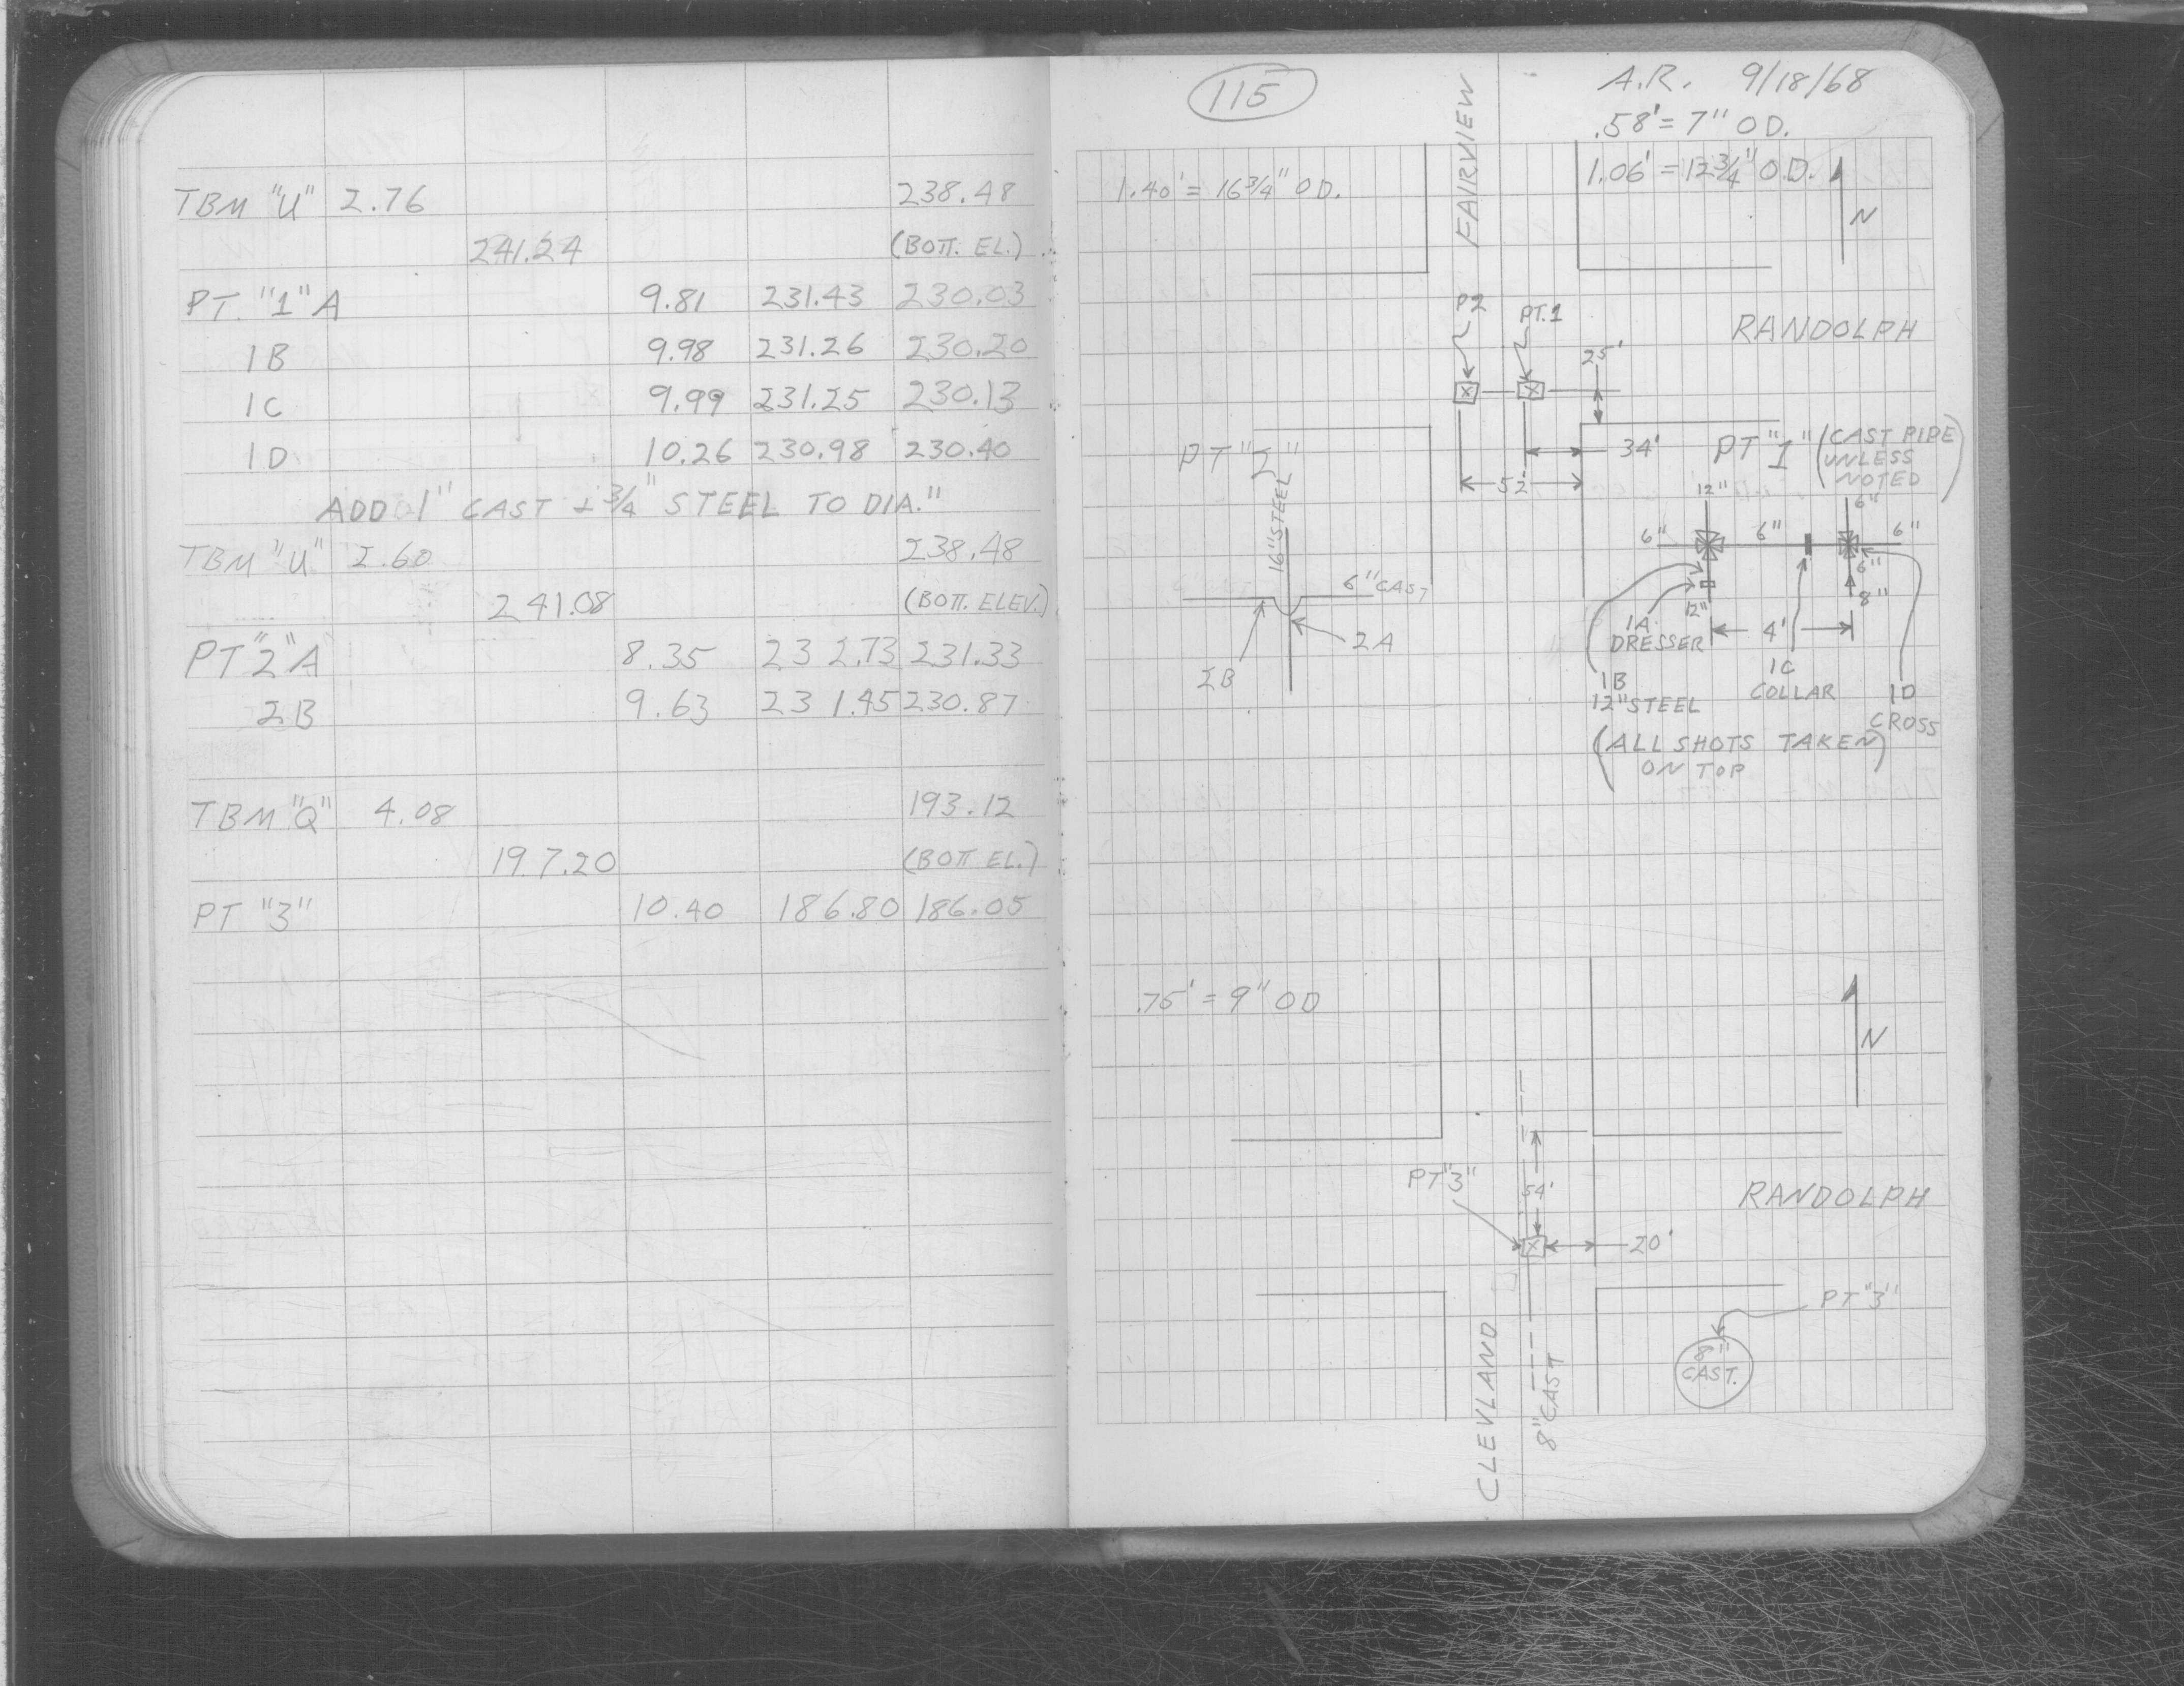 TBM "U" 2.76 238.48
241.24 (BOTT. EL.)
PT. "1" A 9.81 231.43 230.03
1B 9.98 231.26 230.20
1C 9.99 231.25 230.13
1D 10.26 230.98 230.40
ADD 1" CAST + 3/4" STEEL TO DIA."
TBM "U" 2.60 238.48
241.08 (BOTT. ELEV.)
PT "2" A 8.35 232.73 231.33
2B 9.63 231.45 230.87
TBM "Q" 4.08 193.12
197.20 (BOTT EL.)
PT "3" 10.40 186.80 186.05
115
A.R. 9/18/68
.58' = 7" OD.
1.06' = 12 3/4" O.D.
1.40' = 16 3/4" OD.
FAIRVIEW
N
P2
PT.1
RANDOLPH
25'
34'
52'
PT "2"
16" STEEL
6" CAST
2A
2B
PT "1" (CAST PIPE
UNLESS
NOTED)
12"
6"
6"
6"
6"
6"
8"
12"
4'
1A
DRESSER
1B
12" STEEL
1C
COLLAR
1D
CROSS
(ALL SHOTS TAKEN
ON TOP)
.75' = 9" OD
N
PT "3"
54'
RANDOLPH
20'
PT "3"
8"
CAST.
CLEVLAND
8" CAST